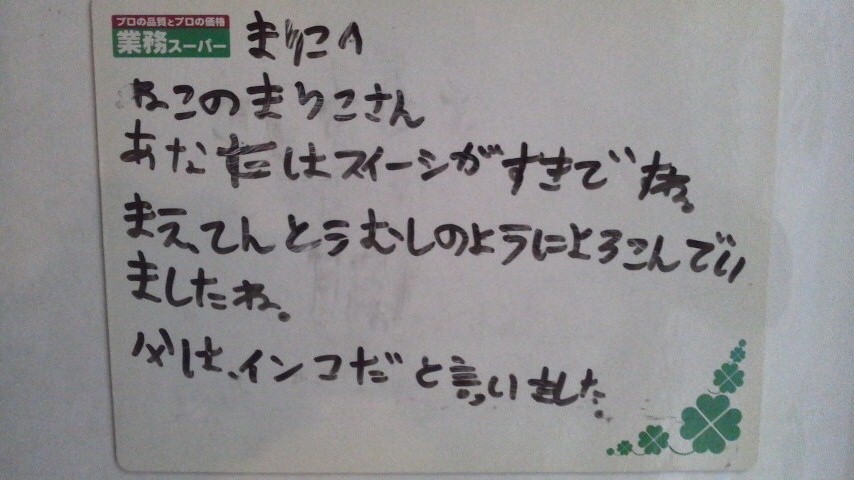 プロの品質とプロの価格
業務スーパー
まりこへ
ねこのまりこさん
あなたはスイーシがすきですね。
まえ、てんとうむしのようによろこんでい
ましたね。
父は、インコだと言いました。